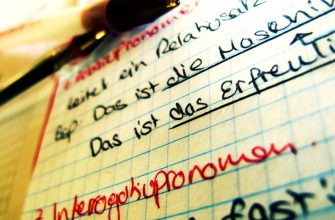 Relativpronomen
leitet ein Relativsatz
Bsp Das ist die Maschin
Das ist das Erfreuli
3. Interrogativpronomen.